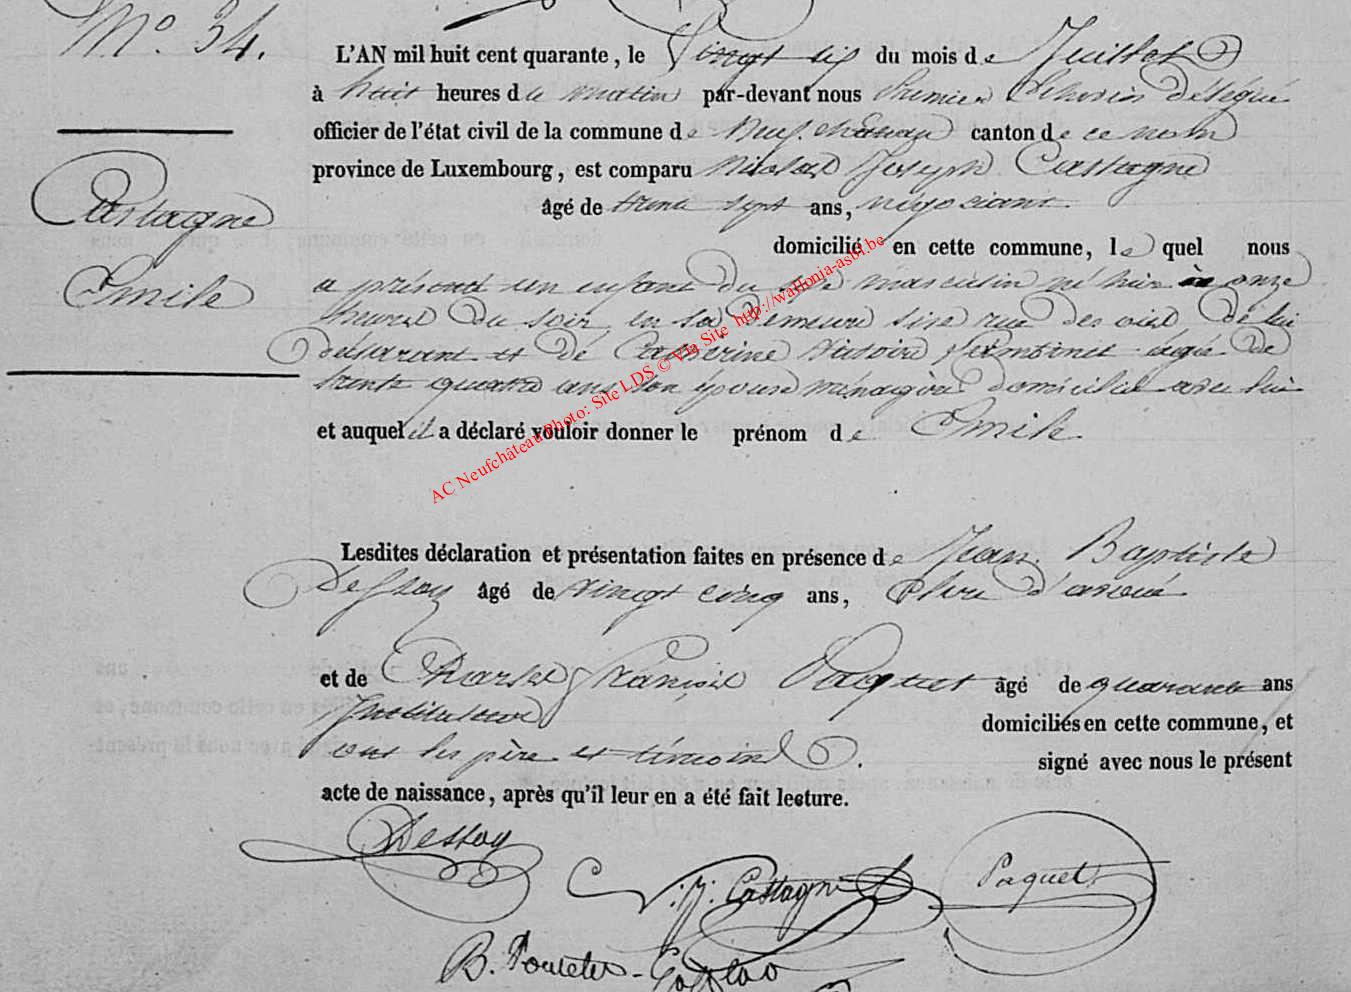 N.o 34.
Castagne
Emile
L'AN mil huit cent quarante, le Vingt six du mois de Juillet
à huit heures du matin par-devant nous Premier Echevin délégué
officier de l'état civil de la commune de Neufchateau canton de ce nom
province de Luxembourg, est comparu Nicolas Joseph Castagne
âgé de trente sept ans, négociant.
domicilié en cette commune, lequel nous
a présenté un enfant du sexe masculin né hier à onze
heures du soir, en sa demeure sise rue des
déclarant et de Catherine Victoire agée de
trente quatre ans son épouse ménagère domiciliée avec lui
et auquel il a déclaré vouloir donner le prénom de Emile
Lesdites déclaration et présentation faites en présence de Jean Baptiste
Dessoy âgé de vingt cinq ans, Clerc d'avoué
et de Charles François Paquet âgé de quarante ans
Instituteur domiciliés en cette commune, et
ont les père et témoins signé avec nous le présent
acte de naissance, après qu'il leur en a été fait lecture.
Dessoy
N. J. Castagne
Paquet
AC Neufchâteau Photo: Site LDS © Via Site http://wallonia-asbl.be